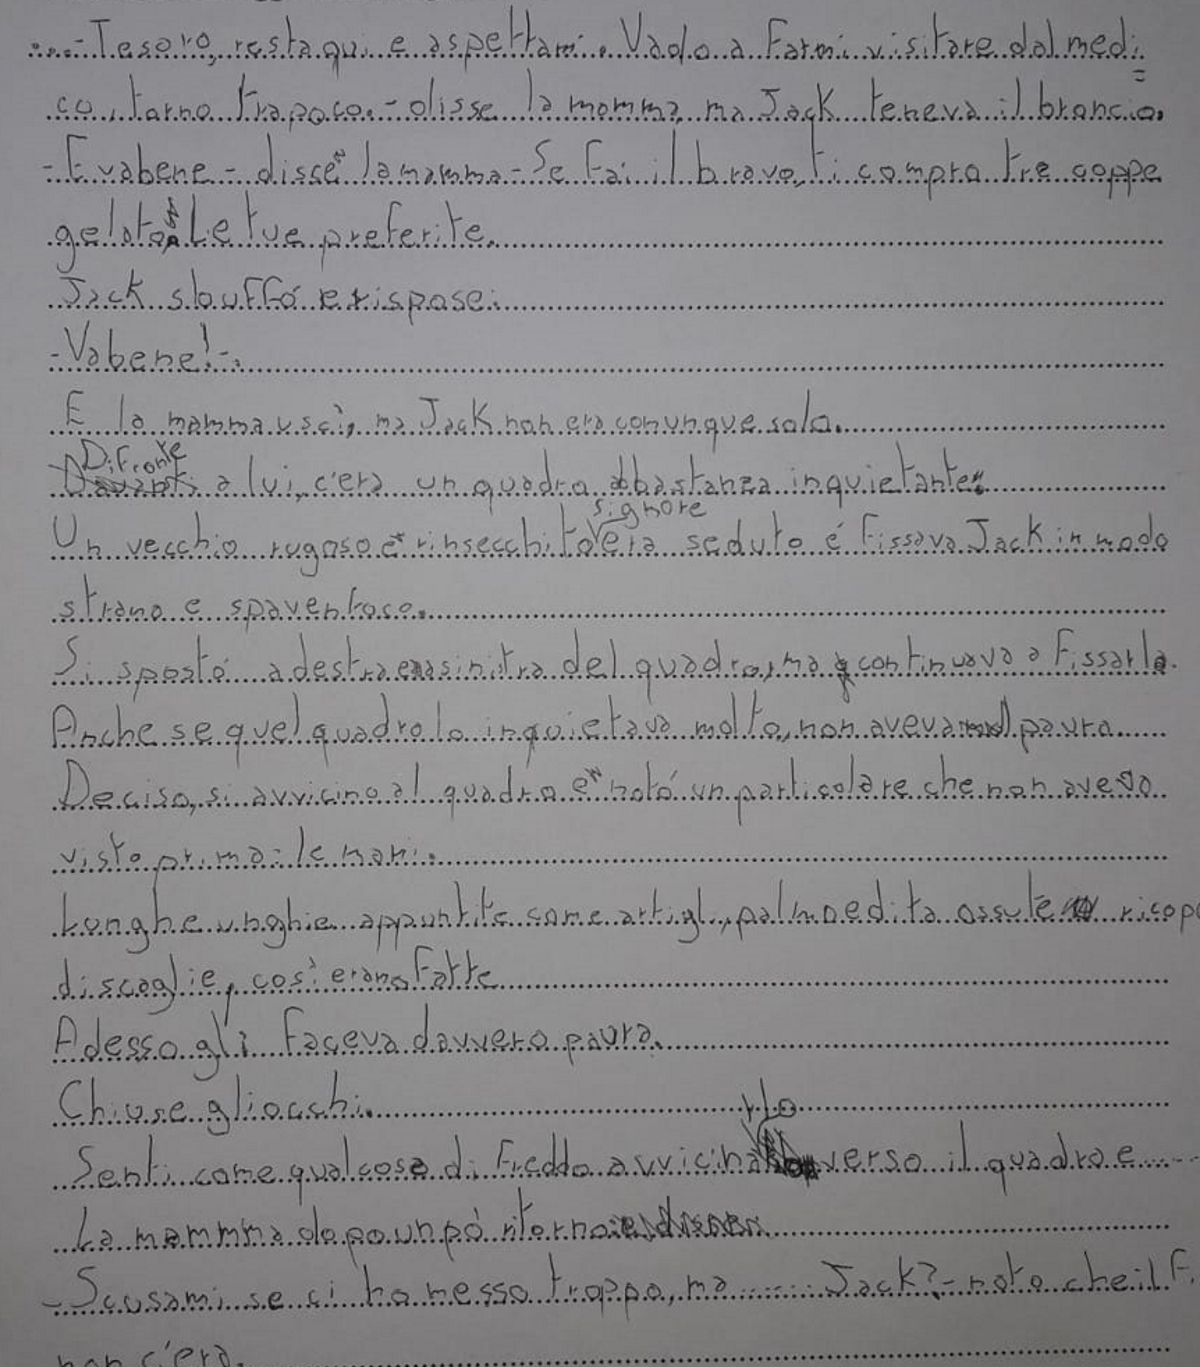 ...-Tesoro, resta qui e aspettami. Vado a farmi visitare dal medi
co, torno tra poco.- disse la mamma, ma Jack teneva il broncio.
-E va bene - disse la mamma - Se fai il bravo, ti compro tre coppe
gelato. Le tue preferite.
Jack sbuffó e rispose:
-Va bene!-.
E la mamma uscì, ma Jack non era comunque solo.
Di fronte a lui, c'era un quadro abbastanza inquietante.
Un vecchio rugoso e rinsecchito signore era seduto é fissava Jack in modo
strano e spaventoso.
Si spostó a destra e a sinistra del quadro, ma continuava a fissarlo.
Anche se quel quadro lo inquietava molto, non aveva paura.
Deciso, si avvicino al quadro e notó un particolare che non aveva
visto prima: le mani.
Lunghe unghie appuntite come artigli, palmo e dita ossute
di scaglie, cosi erano fatte
Adesso gli faceva davvero paura.
Chiuse gli occhi.
Senti come qualcosa di freddo verso il quadro e ....
La mamma dopo un pó ritorno
-Scusami se ci ho messo troppo, ma ..... Jack?- noto che il
non c'era.